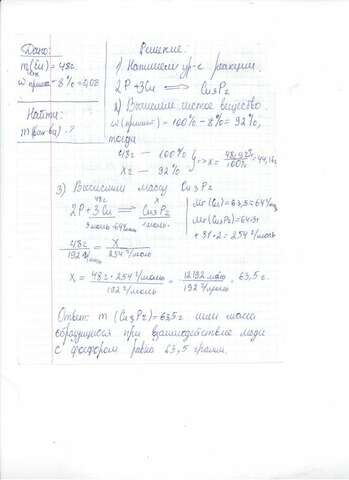 Дано:
m(Cu) = 48г.
ω прим. = 8% = 0,08
Найти:
m(рав-ва) - ?
Решение:
1) Напишем ур-е реакции.
2P + 3Cu ⟹ Cu3P2
2) Вычислим чистое вещество.
ω(примес.) = 100% - 8% = 92%,
тогда
48г — 100%
xг — 92%
=> x = 48г·92% / 100% = 44,16г
3) Вычислим массу Cu3P2
48г x
2P + 3Cu ⟹ Cu3P2
3моль·64г/моль 1моль.
Mr(Cu) = 63,5 = 64г/моль
Mr(Cu3P2) = 64·3+
+ 31·2 = 254г/моль
48г / 192г/моль = x / 254г/моль
x = 48г·254г/моль / 192г/моль = 12192 / 192г/моль = 63,5г.
Ответ: m (Cu3P2) = 63,5г или масса
образующиеся при взаимодействие меди
с фосфором равна 63,5 грамм.